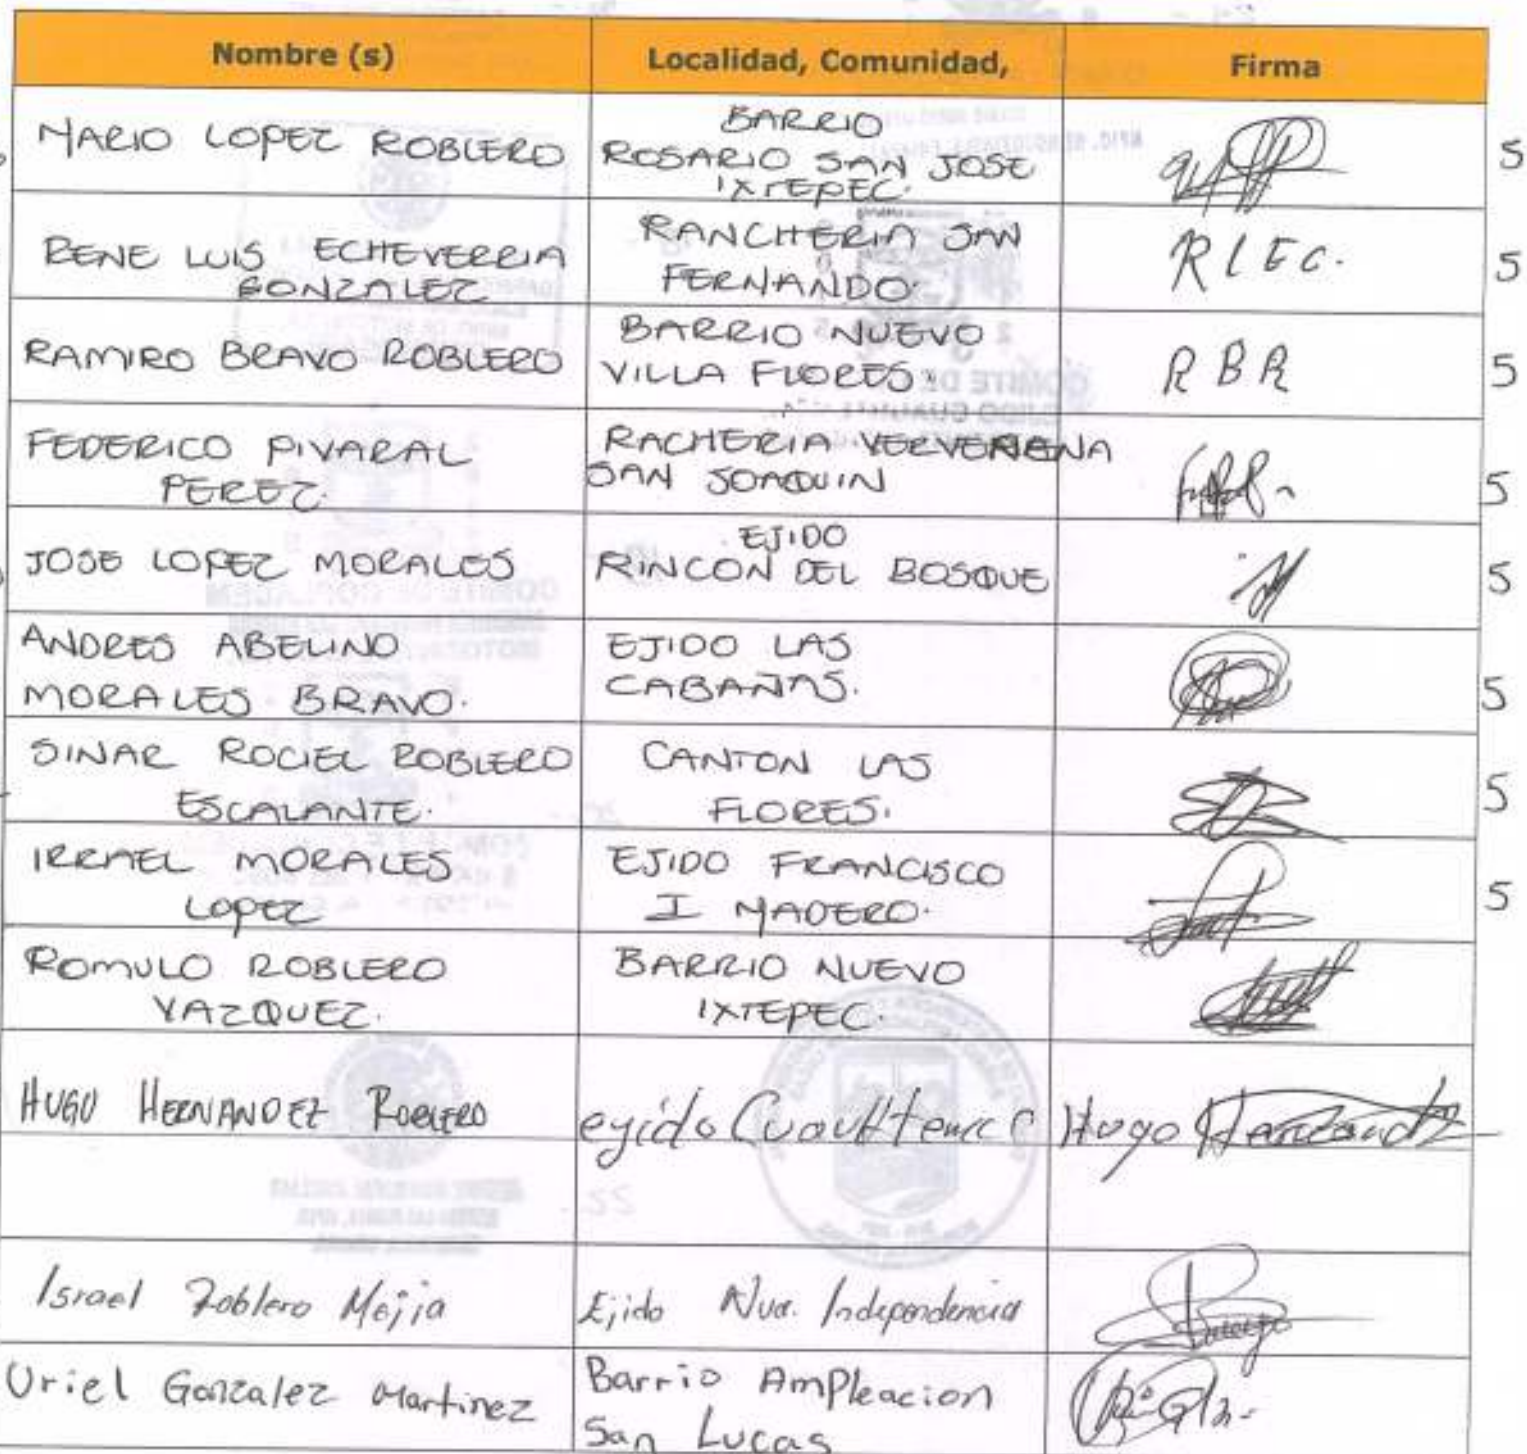 Nombre (s) Localidad, Comunidad, Firma
MARIO LOPEZ ROBLERO
BARRIO
ROSARIO SAN JOSE
IXTEPEC.
5
RENE LUIS ECHEVERRIA
GONZALEZ
RANCHERIA SAN
FERNANDO.
R L E C.
5
RAMIRO BRAVO ROBLERO
BARRIO NUEVO
VILLA FLORES.
R B R
5
FEDERICO PIVARAL
PEREZ.
RACHERIA VERVERENA
SAN JOAQUIN
5
JOSE LOPEZ MORALES
EJIDO
RINCON DEL BOSQUE
5
ANDRES ABELINO
MORALES BRAVO.
EJIDO LAS
CABAÑAS.
5
SINAR ROCIEL ROBLERO
ESCALANTE.
CANTON LAS
FLORES.
5
IRRAEL MORALES
LOPEZ
EJIDO FRANCISCO
I MADERO.
5
ROMULO ROBLERO
VAZQUEZ.
BARRIO NUEVO
IXTEPEC.
HUGO HERNANDEZ ROBLERO
ejido Cuauhtemoc
Hugo Hernandez
Israel Roblero Mejia
Ejido Nva. Independencia
Uriel Gonzalez Martinez
Barrio Ampleacion
San Lucas